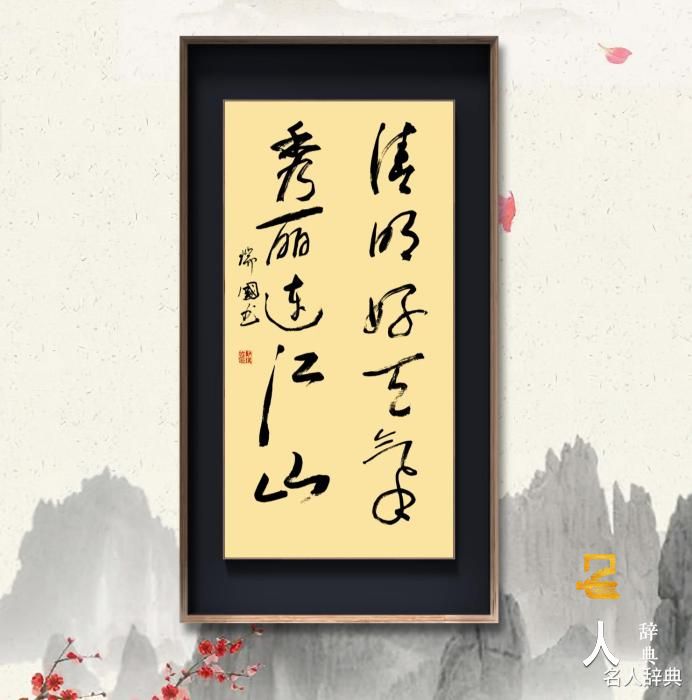 清明好天氣
秀丽连江山
瑞國书
名
人
辞典
名人辞典